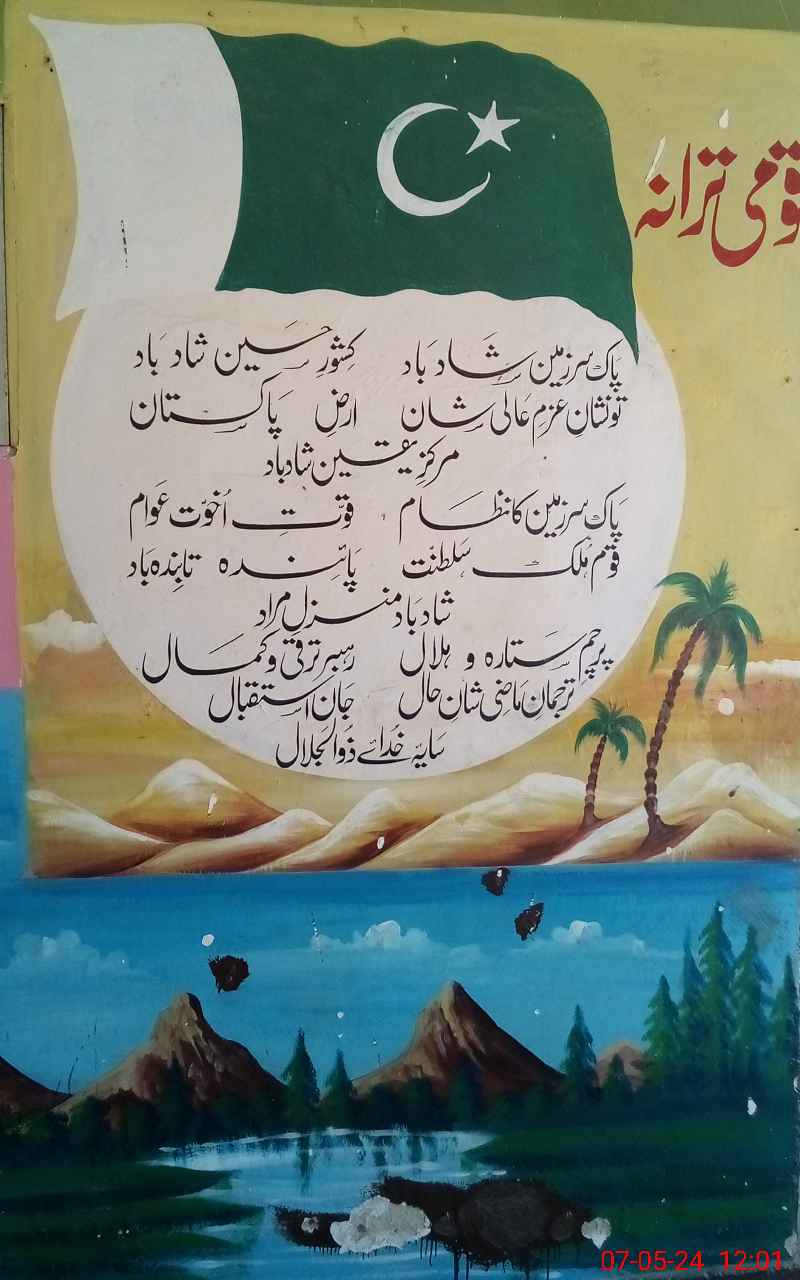 قومی ترانہ
پاک سرزمین شاد باد کشورِ حسین شاد باد
تو نشانِ عزمِ عالی شان ارضِ پاکستان
مرکزِ یقین شاد باد
پاک سرزمین کا نظام قوّتِ اُخوّت عَوام
قوم ملک سلطنت پائندہ تابندہ باد
شاد باد منزلِ مراد
پرچم ستارہ و ہلال رہبر ترقی و کمال
ترجمانِ ماضی شانِ حال جان استقبال
سایۂ خدائے ذوالجلال
07-05-24 12:01